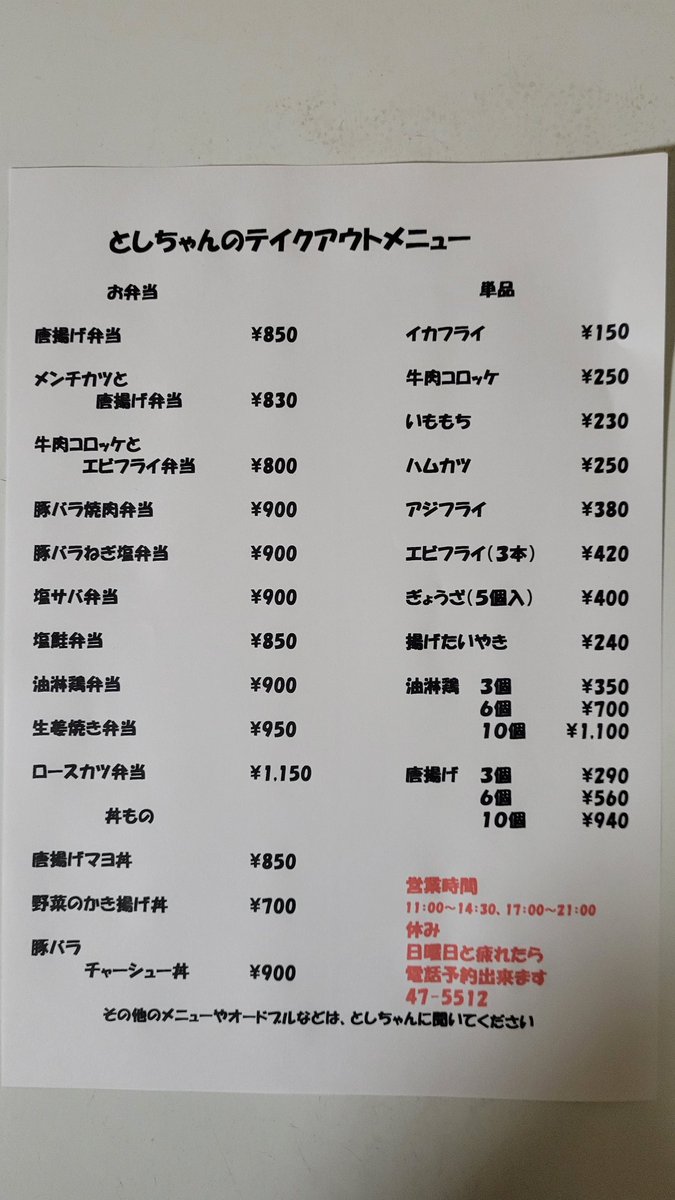 としちゃんのテイクアウトメニュー
お弁当
唐揚げ弁当 ¥850
メンチカツと
唐揚げ弁当 ¥830
牛肉コロッケと
エビフライ弁当 ¥800
豚バラ焼肉弁当 ¥900
豚バラねぎ塩弁当 ¥900
塩サバ弁当 ¥900
塩鮭弁当 ¥850
油淋鶏弁当 ¥900
生姜焼き弁当 ¥950
ロースカツ弁当 ¥1,150
丼もの
唐揚げマヨ丼 ¥850
野菜のかき揚げ丼 ¥700
豚バラ
チャーシュー丼 ¥900
単品
イカフライ ¥150
牛肉コロッケ ¥250
いももち ¥230
ハムカツ ¥250
アジフライ ¥380
エビフライ(3本) ¥420
ぎょうざ(5個入) ¥400
揚げたいやき ¥240
油淋鶏 3個 ¥350
6個 ¥700
10個 ¥1,100
唐揚げ 3個 ¥290
6個 ¥560
10個 ¥940
営業時間
11:00~14:30、17:00~21:00
休み
日曜日と疲れたら
電話予約出来ます
47-5512
その他のメニューやオードブルなどは、としちゃんに聞いてください